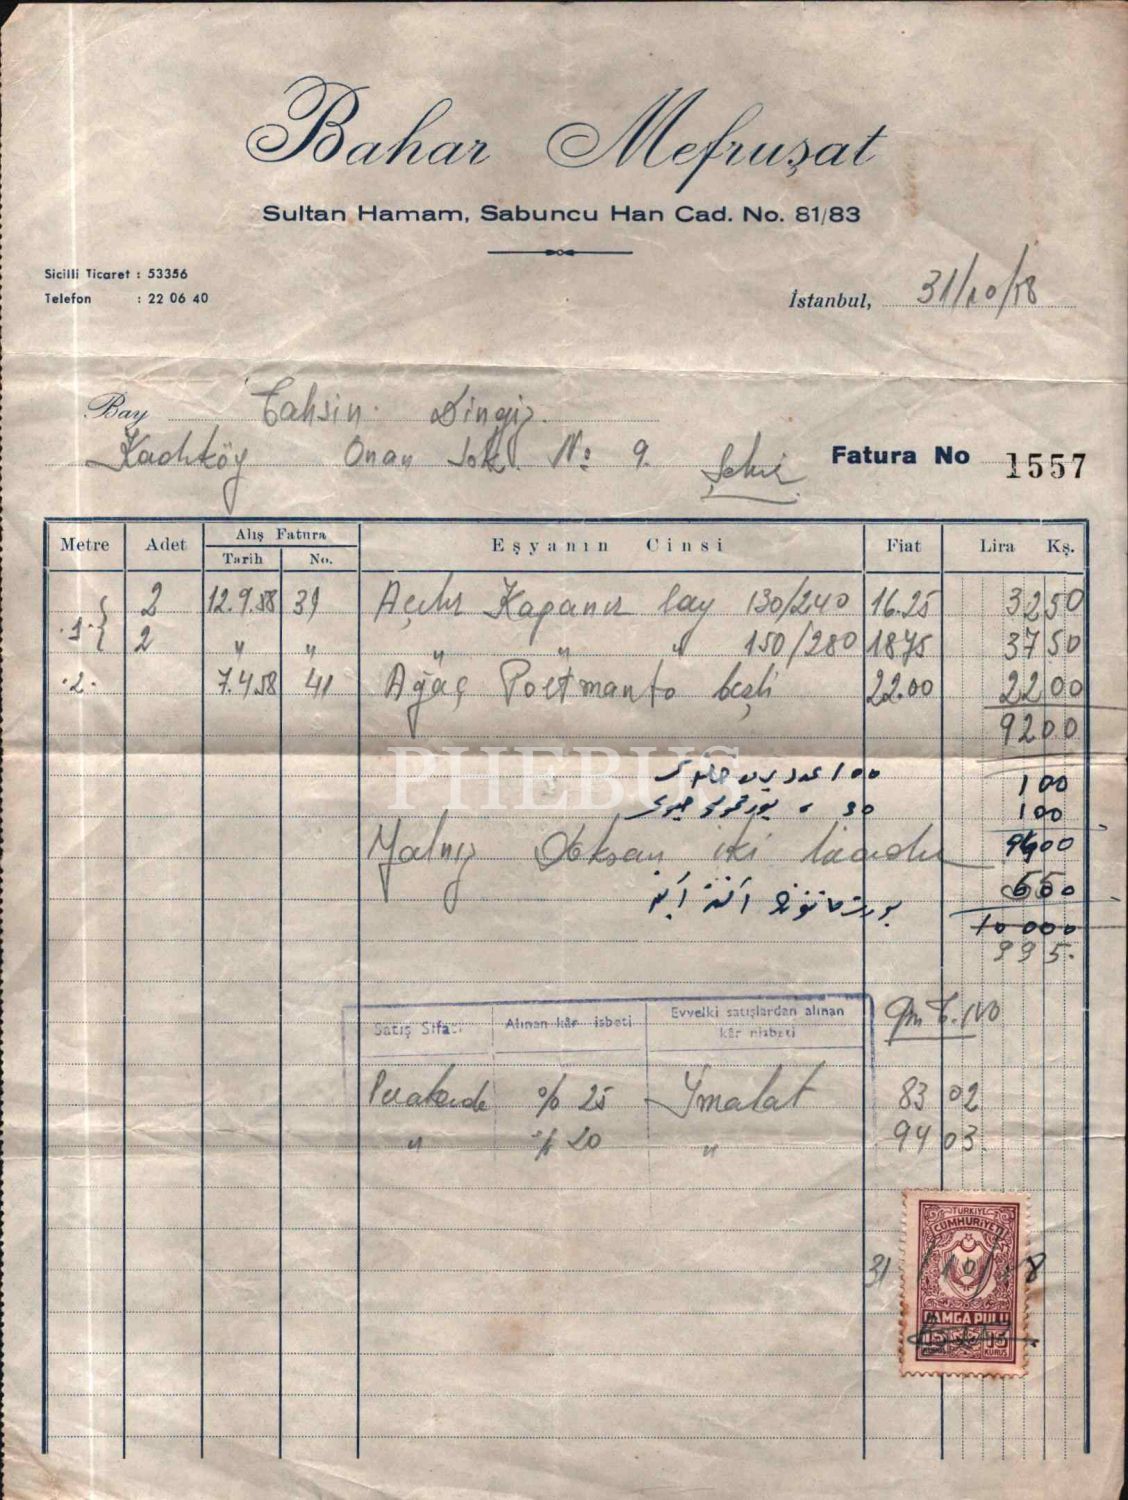 Bahar Mefruşat
Sultan Hamam, Sabuncu Han Cad. No. 81/83
Sicilli Ticaret : 53356
Telefon : 22 06 40
İstanbul, 31/10/58
Bay Tahsin Dingiz.
Kadıköy Onan Sok. No 9. Şehir
Fatura No 1557
Metre Adet Alış Fatura Eşyanın Cinsi Fiat Lira Kş.
Tarih No.
2 12.9.58 39 Açılır Kapanır 130/240 16.25 32 50
1. 2 " " " " " 150/280 1875 37 50
2. 7.4.58 41 Ağaç Poetmanto beşli 22.00 22 00
92 00
PHEBUS
100
100
Yalnız Doksan iki liradır 94 00
10 000
995.
Satış Sıfatı Alınan kâr nisbeti Evvelki satışlardan alınan kâr nisbeti
Perakende % 25 Ymalat 83 02
" % 20 " 94 03.
TÜRKİYE
CUMHURİYETİ
31/10/58
DAMGA PULU
15 15
KURUŞ